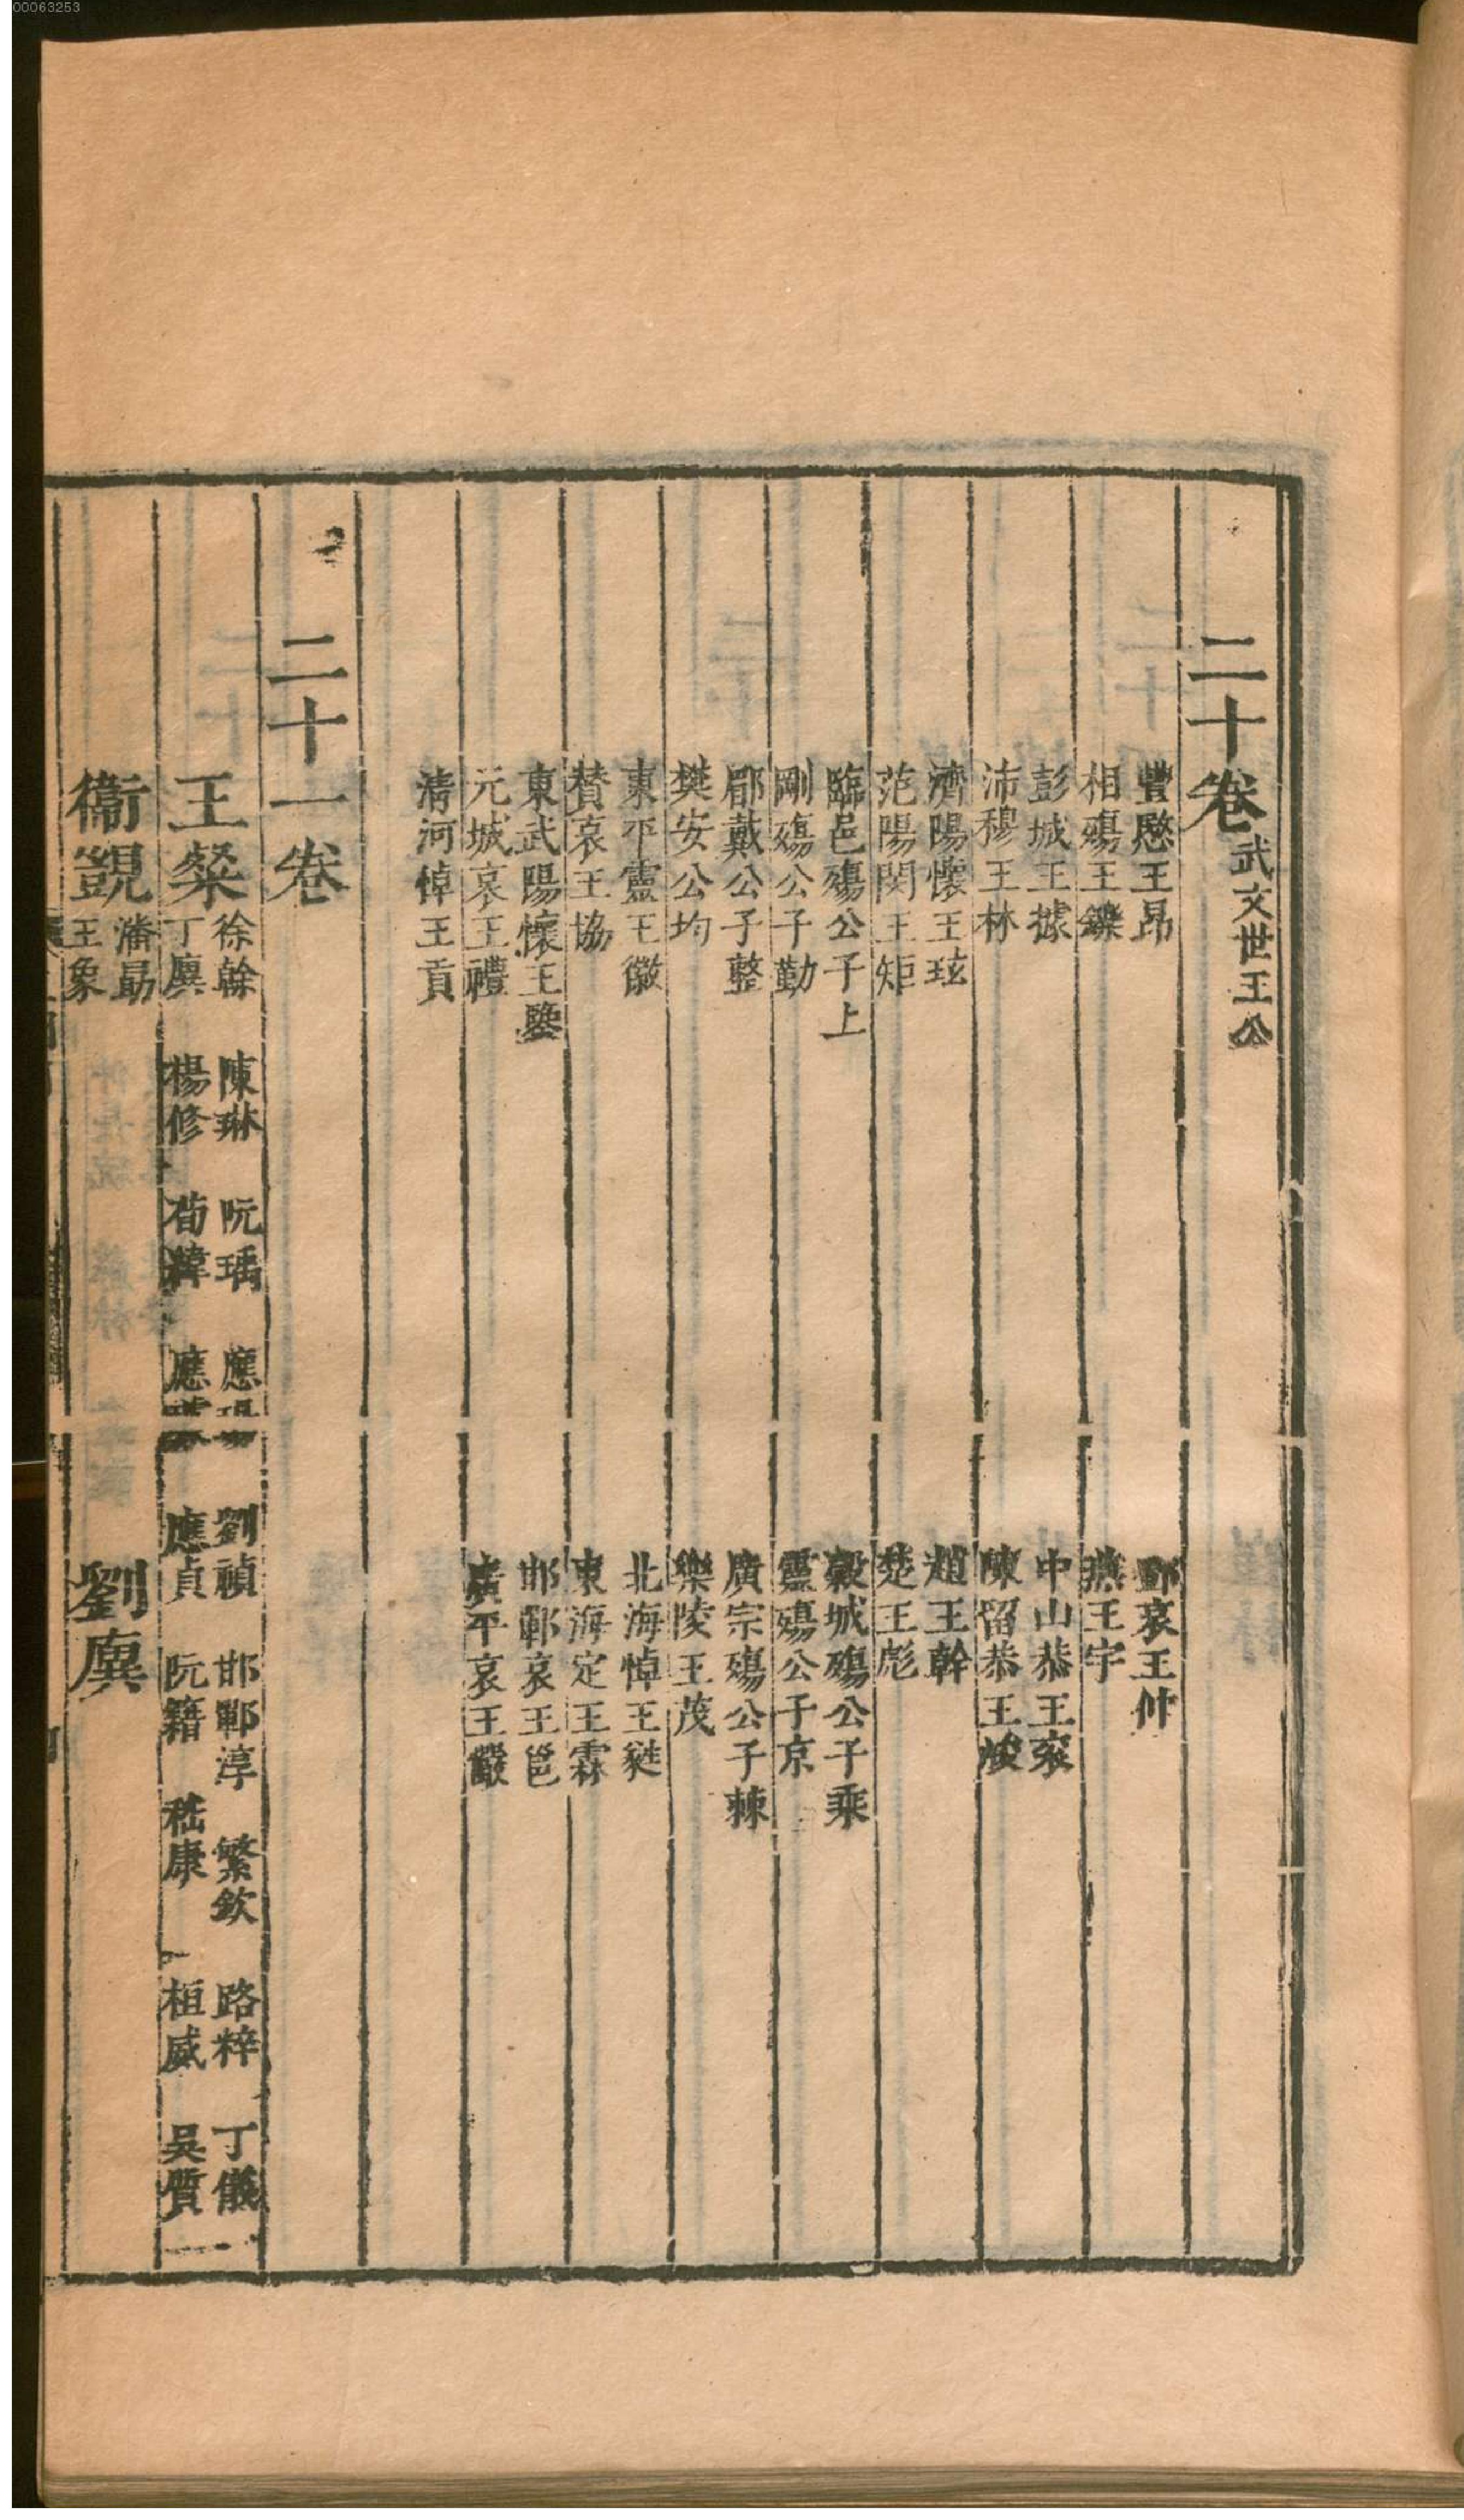 00063253
二十卷武文世王公
豐愍王昂 鄧哀王仲
相殤王鑠 燕王宇
彭城王據 中山恭王袞
沛穆王林 陳留恭王峻
濟陽懷王玹 趙王幹
范陽閔王矩 楚王彪
臨邑殤公子上 穀城殤公子乘
剛殤公子勤 靈殤公子京
郿戴公子整 廣宗殤公子棘
樊安公均 樂陵王茂
東平靈王徽 北海悼王蕤
贊哀王協 東海定王霖
東武陽懷王鑒 邯鄲哀王邕
元城哀王禮 廣平哀王儼
清河悼王貢
二十一卷
王粲 徐幹 陳琳 阮瑀 應瑒 劉楨 邯鄲淳 繁欽 路粹 丁儀
丁廙 楊修 荀緯 應璩 應貞 阮籍 嵇康 桓威 吳質
衞覬 潘勗 王象 劉廙